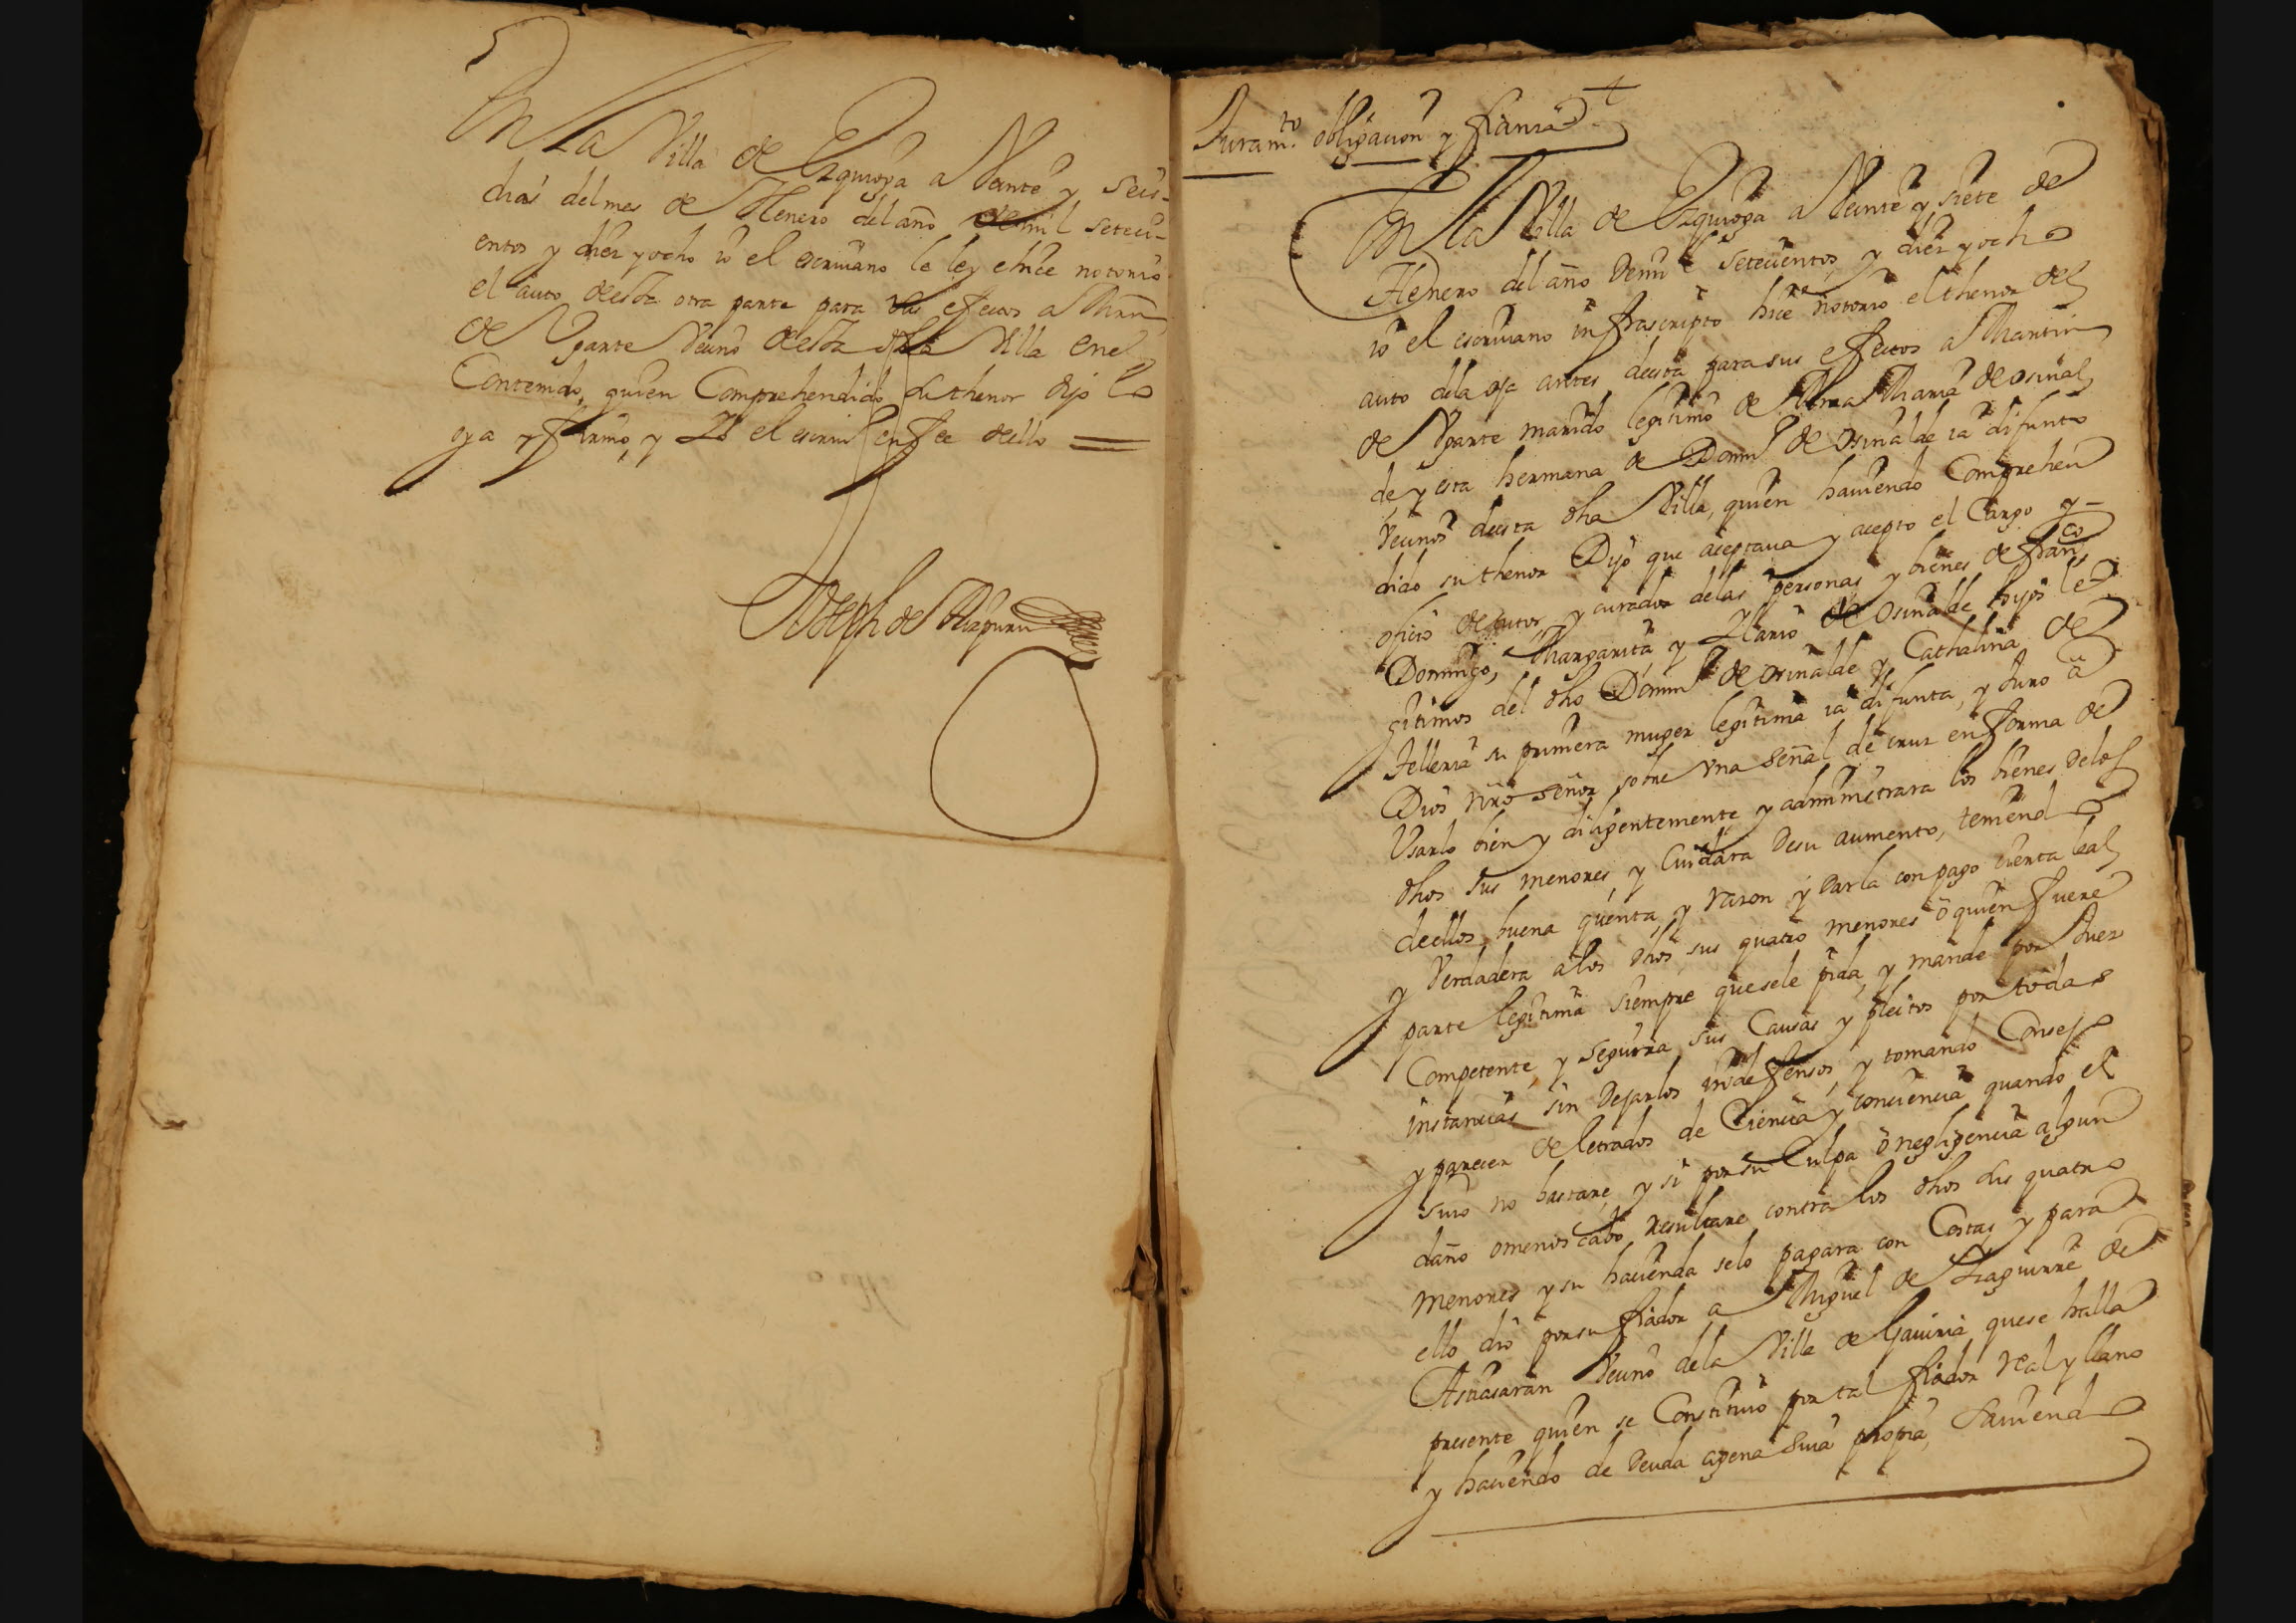 En la Villa de Ezquioga a Veinte y seis
dias del mes de Henero del año de mil setecu-
entos y diez y ocho io el escriuano le ley e hice notorio
el auto desta otra parte para sus efectos a Mrn
de Vgarte Vecino desta dha Villa enel
Contenido, quien Comprehendido su thenor dijo lo
oya y firmo, y Io el escriuo en fee dello =
Joseph de
Juramto obligacion y fianza
En la Villa de Ezquioga a Veinte y siete de
Henero del año de mil setecientos y diez y ocho
io el escriuano infrascripto hice notorio el thenor del
auto dela oja antes desta para sus efectos a Martin
de Vgarte marido legitimo de Maria de osinal
de, y esta hermana de Domin de Osinalde ia difunto
Vecinos desta dha Villa, quien hauiendo Comprehen
dido su thenor Dijo que aceptaua y acepto el Cargo y
oficio de tutor y curador delas personas y bienes de franco
Domingo, Margarita y Ilario de Osinalde hijos le
gitimos del dho Domin de osinalde y Cathalina de
Telleria su primera muger legitima ia difunta, y Juro a
Dios nro señor sobre vna señal de cruz en forma de
Vsarlo bien y diligentemente y administrara los bienes delos
dhos sus menores y Cuidara desu aumento, teniendo
dellos buena quenta, y razon y darla con pago cierta leal
y Verdadera alos dhos sus quatro menores o quien fuere
parte legitima siempre quesele pida, y mande por Juez
Competente, y seguira sus Causas y pleitos por todas
instancias sin Dejarlos indefensos, y tomando Consejo
y parecer de letrados de Ciencia y conciencia quando el
suio no bastare, y si por su Culpa o negligencia algun
daño o menoscabo resultare contra los dhos sus quatro
menores y su hacienda selo pagara con Costas y para
ello dio por su fiador a Miguel de Izaguirre de
Astiasaran Vecino dela Villa de Gauiria quese halla
presente quien se Constituio por tal fiador real y llano
y haciendo de deuda agena suia propia, Sauiendo